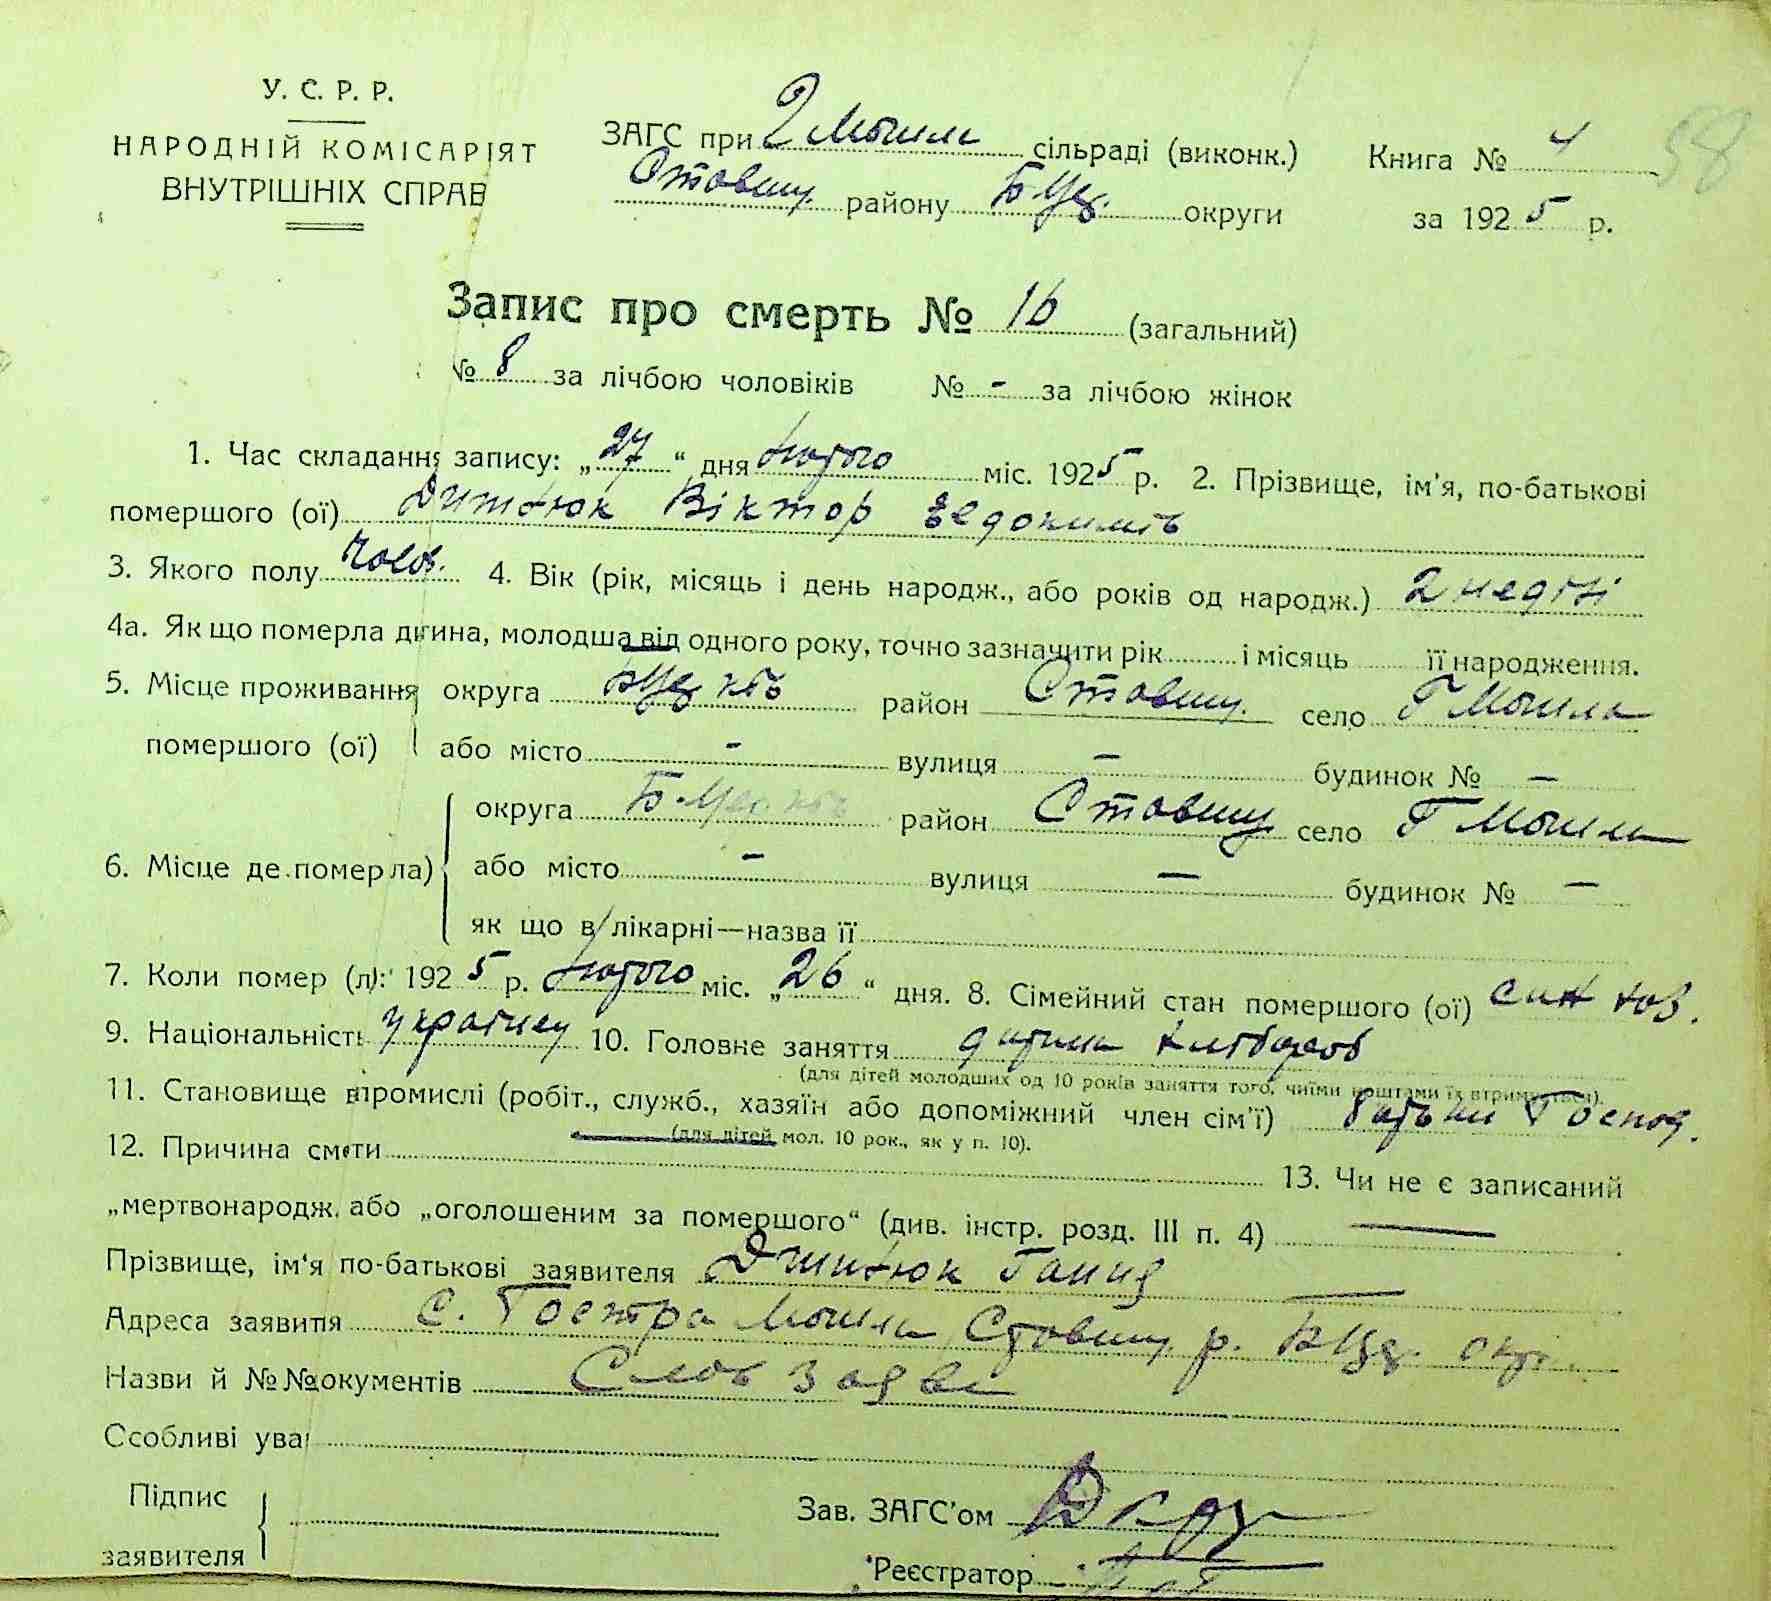 У. С. Р. Р.
НАРОДНІЙ КОМІСАРІЯТ
ВНУТРІШНІХ СПРАВ
ЗАГС при Г Могили сільраді (виконк.)
Ставищ. району Б-Цер. округи
Книга № 4
за 1925 р.
58
Запис про смерть № 16 (загальний)
№ 8 за лічбою чоловіків № - за лічбою жінок
1. Час складання запису: „27“ дня лютого міс. 1925 р. 2. Прізвище, ім'я, по-батькові
помершого (ої) Віктор Євдокимів
3. Якого полу чолов. 4. Вік (рік, місяць і день народж., або років од народж.) 2 неділі
4а. Як що померла дитина, молодша від одного року, точно зазначити рік і місяць її народження.
5. Місце проживання округа БЦерків район Ставищ. село Г Могила
помершого (ої) або місто - вулиця - будинок № -
округа Б-Церків район Ставищ село Г Могили
6. Місце де помер ла) або місто - вулиця - будинок № -
як що в лікарні—назва її
7. Коли помер (л): 1925 р. лютого міс. „26“ дня. 8. Сімейний стан помершого (ої) син
9. Національність українец 10. Головне заняття дитина хлібороб
(для дітей молодших од 10 років заняття того, чиїми коштами їх втримується).
11. Становище в промислі (робіт., служб., хазяїн або допоміжний член сім'ї) батько Господ.
(для дітей мол. 10 рок., як у п. 10).
12. Причина смети 13. Чи не є записаний
„мертвонародж. або „оголошеним за помершого“ (див. інстр. розд. III п. 4) —
Прізвище, ім'я по-батькові заявителя Ганна —
Адреса заявитія с. Гостра Могила Ставищ. р. БЦер. окр.
Назви й №№ документів Слов заява
Особливі уваг
Підпис
заявителя
Зав. ЗАГС'ом
Реєстратор